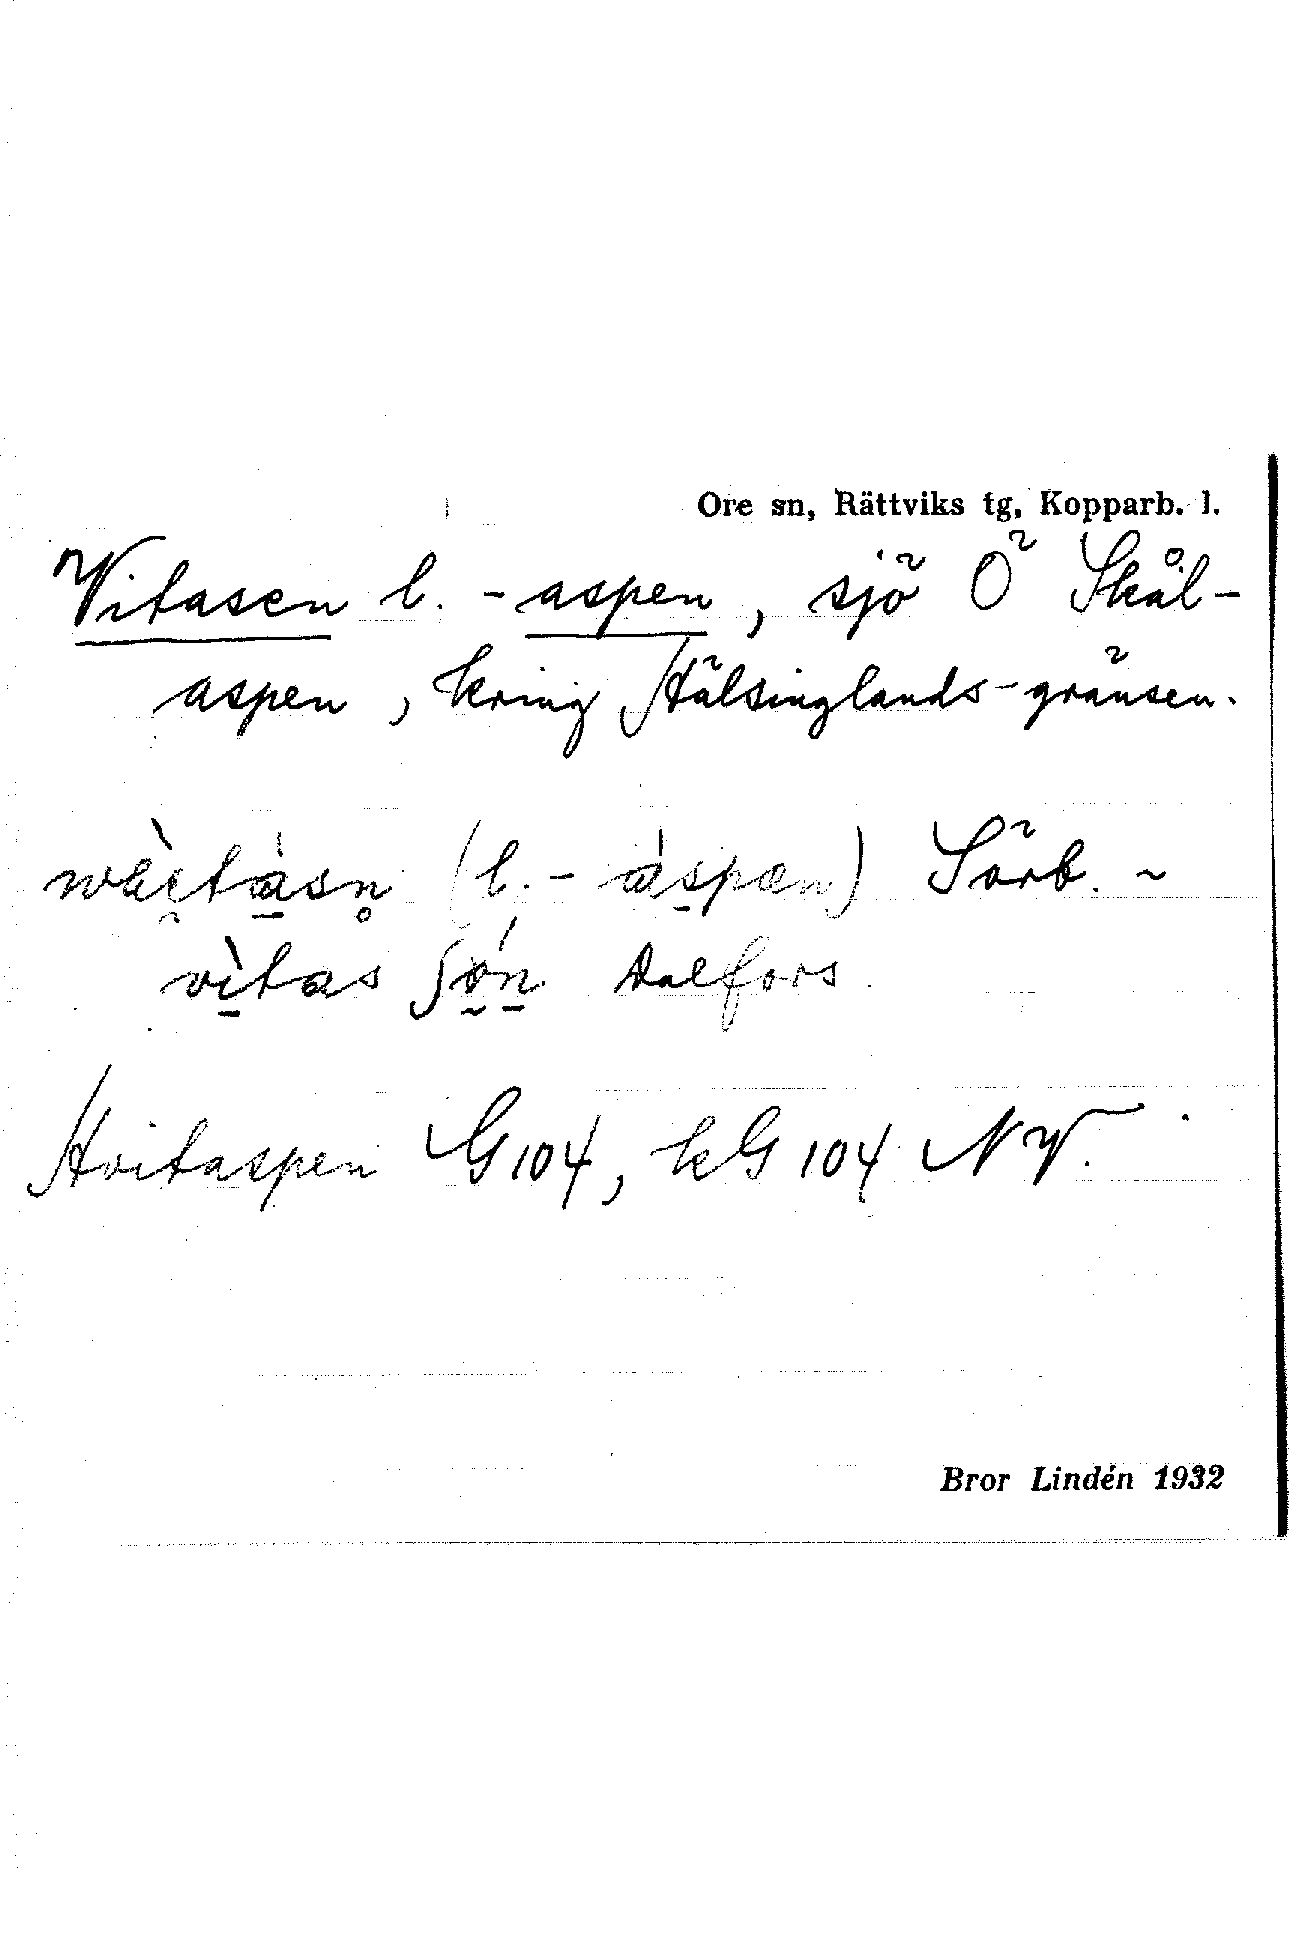 Ore sn, Rättviks tg, Kopparb. l.
Vitasen l. -aspen, sjö Ö Skål-
aspen, kring Hälsinglands-gränsen.
(l. - àspæn) Sörb. ~
vìtas ʃǿn Dalfors
Hvitaspen G104, kG 104 NV.
Bror Lindén 1932